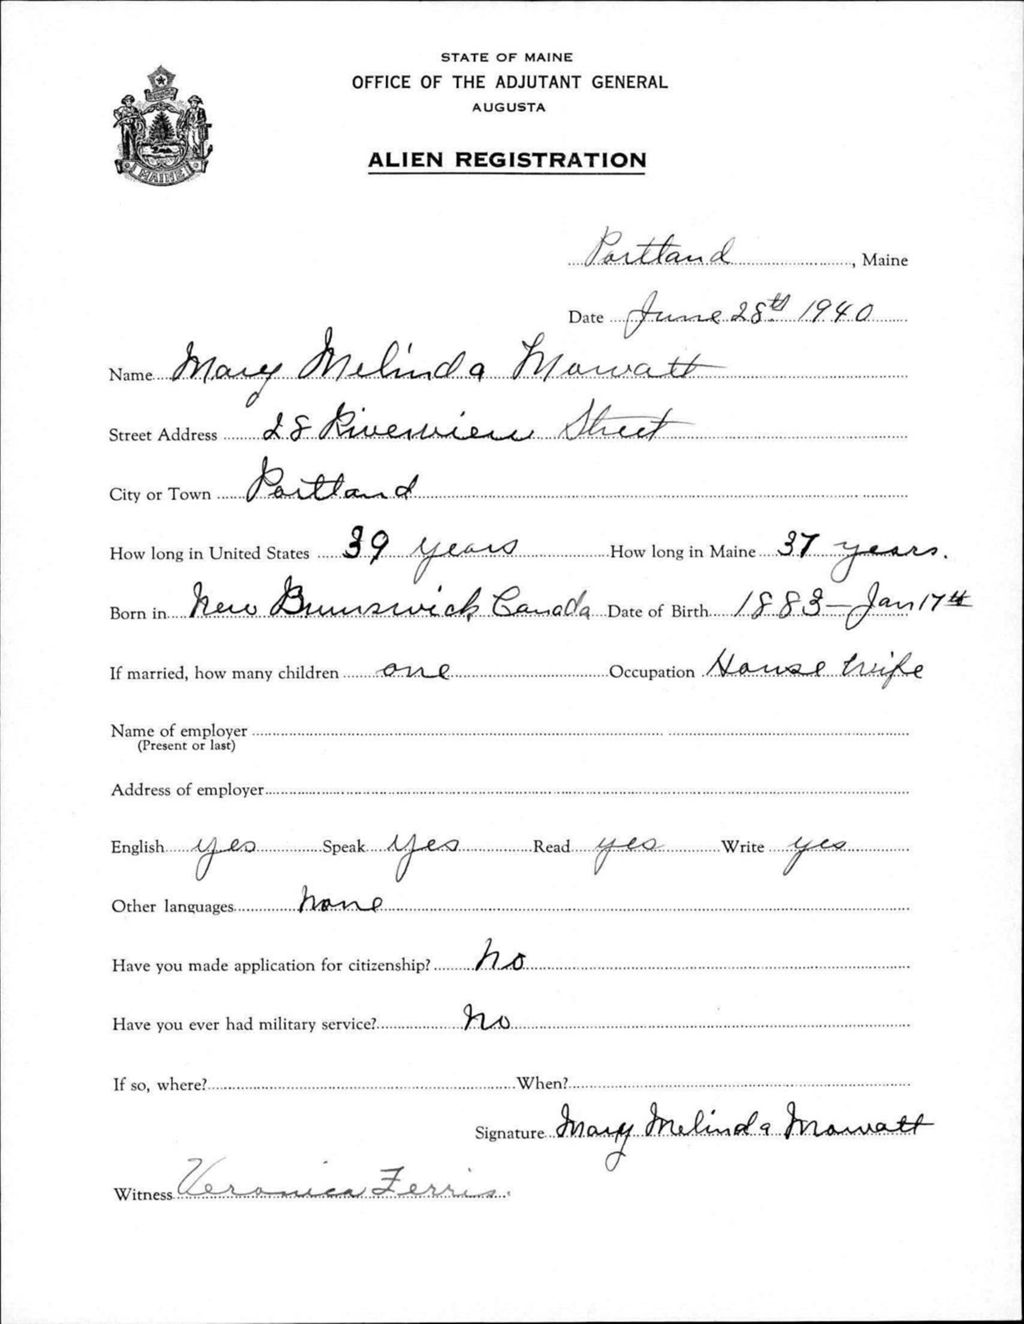 STATE OF MAINE
OFFICE OF THE ADJUTANT GENERAL
AUGUSTA
ALIEN REGISTRATION
MAINE
Portland, Maine
Date June 28th 1940
Name Mary Melinda Mowatt
Street Address 28 Riverview Street
City or Town Portland
How long in United States 39 years How long in Maine 37 years.
Born in New Brunswick Canada Date of Birth 1883-Jan 17th
If married, how many children one Occupation House Wife
Name of employer
(Present or last)
Address of employer
English yes Speak Yes Read yes Write yes
Other languages None
Have you made application for citizenship? No
Have you ever had military service? No
If so, where? When?
Signature Mary Melinda Mowatt
Witness Veronica Ferris.